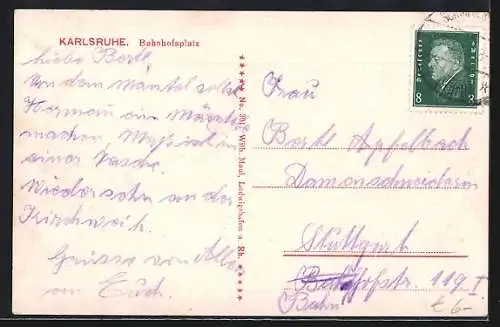 KARLSRUHE. Bahnhofsplatz
liebe Bertl,
Von dem Mantel solle
Hermann ein
machen Maß ist in
einer Tasche.
Wiedersehn an der
Kirchweih.
Grüsse von
an Euch.
No. 391 Wilh. Maul, Ludwigshafen a Rh.
Deutsches Reich
8 8
Frau
Bertl Apfelbach
Damenschneiderin
Stuttgart
Bahnhofstr. 119 I
Bahn
€ 6-